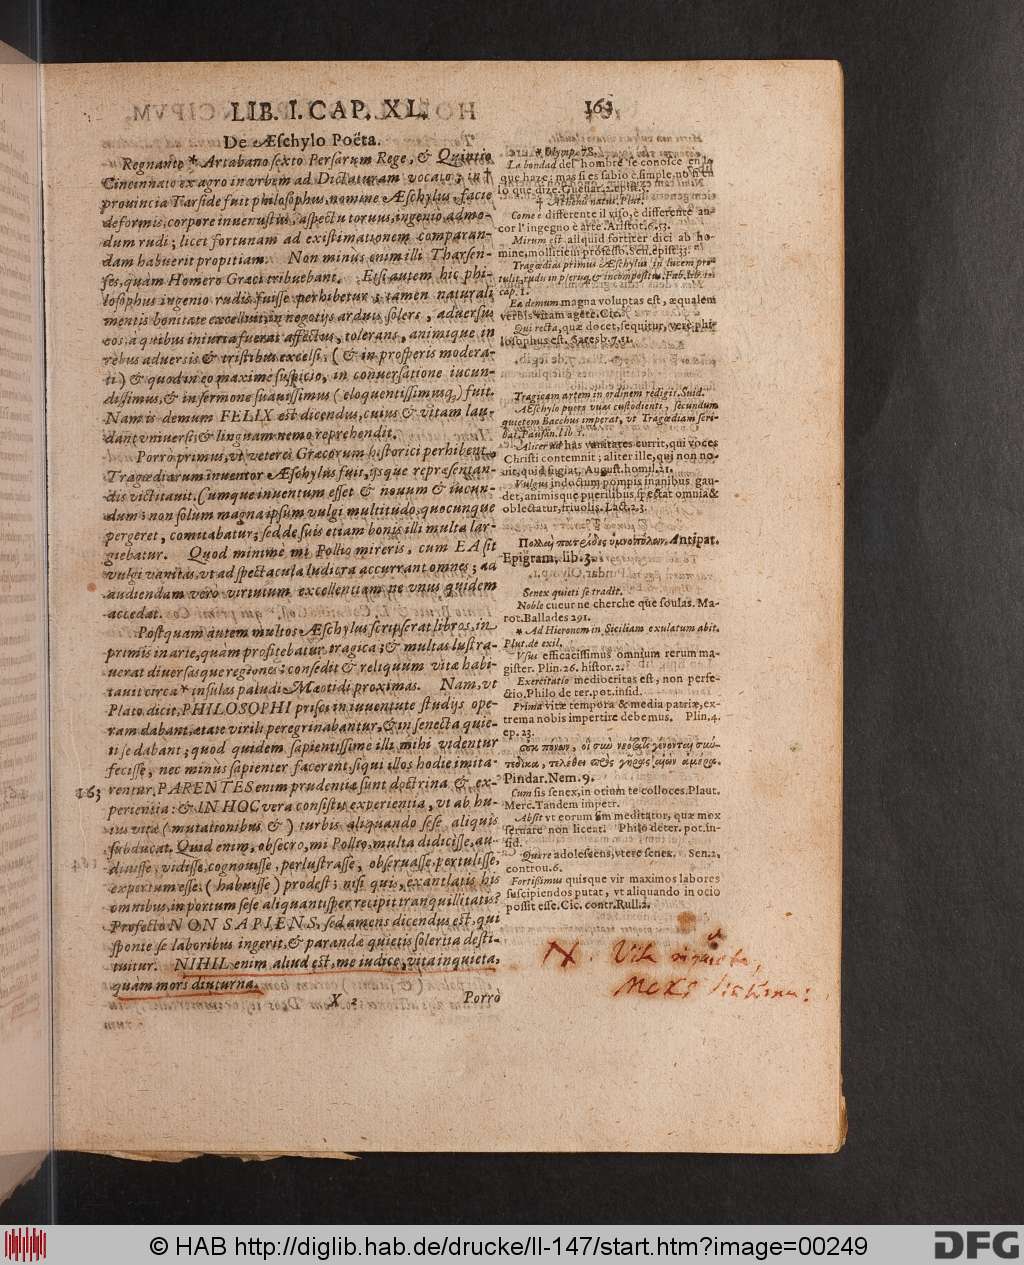 LIB. I. CAP. XL.
163
De Æschylo Poëta.
Regnante * Artabano sexto Persarum Rege, & Quintio
Cincinnato ex agro in urbem ad Dictaturam vocato; in †
prouincia Tarside fuit philosophus, nomine Æschylus, facie
deformis, corpore inuenustus, aspectu toruus, ingenio admo-
dum rudi; licet fortunam ad existimationem comparan-
dam habuerit propitiam. Non minus enim illi Tharsen-
ses, quàm Homero Græci tribuebant. Etsi autem hic phi-
losophus ingenio rudis fuisse perhibetur; tamen naturali
mentis bonitate excelluit, in negotijs arduis solers, aduersus
eos, à quibus iniuria fuerat affectus, tolerans, animique in
rebus aduersis & tristibus excelsi, (& in prosperis modera-
ti) & quod in eo maxime suspicio, in conuersatione iucun-
dissimus, & in sermone suauissimus (eloquentissimusq;) fuit.
Nam is demum FELIX est dicendus, cuius & vitam lau-
dant vniuersi & linguam nemo reprehendit.
Porro primus, vt veteres Græcorum historici perhibent,
Tragœdiarum inuentor Æschylus fuit, ijsque repræsentan-
dis victitauit. Cumque inuentum esset & nouum & iucun-
dum; non solum magna ipsum vulgi multitudo, quocunque
pergeret, comitabatur; sed de suis etiam bonis illi multa lar-
giebatur. Quod minime mi Pollio mireris, cum EA sit
vulgi vanitas, vt ad spectacula ludicra accurrant omnes; ad
audiendam vero virtutum excellentiam ne vnus quidem
accedat.
Postquam autem multos Æschylus scripserat libros, in
primis in arte, quàm profitebatur, tragica; & multas lustra-
uerat diuersasque regiones; consedit & reliquum vitæ habi-
tauit circa * insulas paludi Mæotidi proximas. Nam, vt
Plato dicit, PHILOSOPHI prisci in iuuentute studijs ope-
ram dabant, ætate virili peregrinabantur, & in senecta quie-
ti se dabant; quod quidem sapientissime illi mihi videntur
fecisse, nec minus sapienter facerent, si qui illos hodie imita-
rentur, PARENTES enim prudentiæ sunt doctrina & ex-
perientia: & IN HOC vera consistit experientia, vt ab hu-
ius vitæ (mutationibus &) turbis aliquando sese aliquis
subducat. Quid enim, obsecro, mi Pollio, multa didicisse, au-
diuisse, vidisse, cognouisse, perlustrasse, obseruasse, pertulisse,
expertum esse; (habuisse) prodest; nisi quis, exantlatis his
omnibus, in portum sese aliquantisper recipit tranquillitatis?
Profecto NON SAPIENS, sed amens dicendus est, qui
sponte se laboribus ingerit, & parandæ quietis solertia desti-
tuitur. NIHIL enim aliud est, me iudice, vita inquieta,
quàm mors diuturna.
X 2 Porrò
163
* Olymp. 78.
La bondad del hombre se conoisce en lo
que haze; mas si es sabio è simple, no si en
lo que dize. Gueuar. 2. epist. 5.
† Athenis natus. Plut.
Come è differente il viso, è differente an-
cor l'ingegno è arte. Ariost. 6. 53.
Mirum est aliquid fortiter dici ab ho-
mine, mollitiem professo. Sen. epist. 33.
Tragœdias primus Æschylus in lucem pro-
tulit, rudis in plerisq; & incompositus. Fab. lib. 10.
cap. 1.
Ea demum magna voluptas est, æqualem
verbis vitam agere. Cic.
Qui recta, quæ docet, sequitur, verè phi-
losophus est. Saresb. 7. 11.
Tragicam artem in ordinem redigit. Suid.
Æschylo puero vuas custodienti, secundum
quietem Bacchus imperat, vt Tragœdiam scri-
bat. Pausan. lib. 1.
Aliter ad has vanitates currit, qui voces
Christi contemnit; aliter ille, qui non no-
uit, quid fugiat. August. homil. 21.
Vulgus indoctum pompis inanibus gau-
det, animisque puerilibus spectat omnia &
oblectatur, friuolis. Lact. 2. 3.
Πολλαὶ πατρίδες ὑμνοπόλων. Antipat.
Epigram. lib. 3.
Senex quieti se tradit.
Noble cueur ne cherche que soulas. Ma-
rot. Ballades 291.
* Ad Hieronem in Siciliam exulatum abit.
Plut. de exil.
Vsus efficacissimus omnium rerum ma-
gister. Plin. 26. histor. 2.
Exercitatio mediocritas est, non perfe-
ctio. Philo de ter. pot. insid.
Prima vitæ tempora & media patriæ, ex-
trema nobis impertire debemus. Plin. 4.
ep. 23.
Pindar. Nem. 9.
Cum sis senex, in otium te colloces. Plaut.
Merc. Tandem impetr.
Absit vt eorum sim meditator, quæ mox
seruare non liceat. Philo deter. pot. in-
sid.
Quære adolescens, vtere senex. Sen. 2.
controu. 6.
Fortissimus quisque vir maximos labores
suscipiendos putat, vt aliquando in ocio
possit esse. Cic. contr. Rull. 2.
Vita inquieta,
Mors diuturna:
© HAB http://diglib.hab.de/drucke/ll-147/start.htm?image=00249
DFG